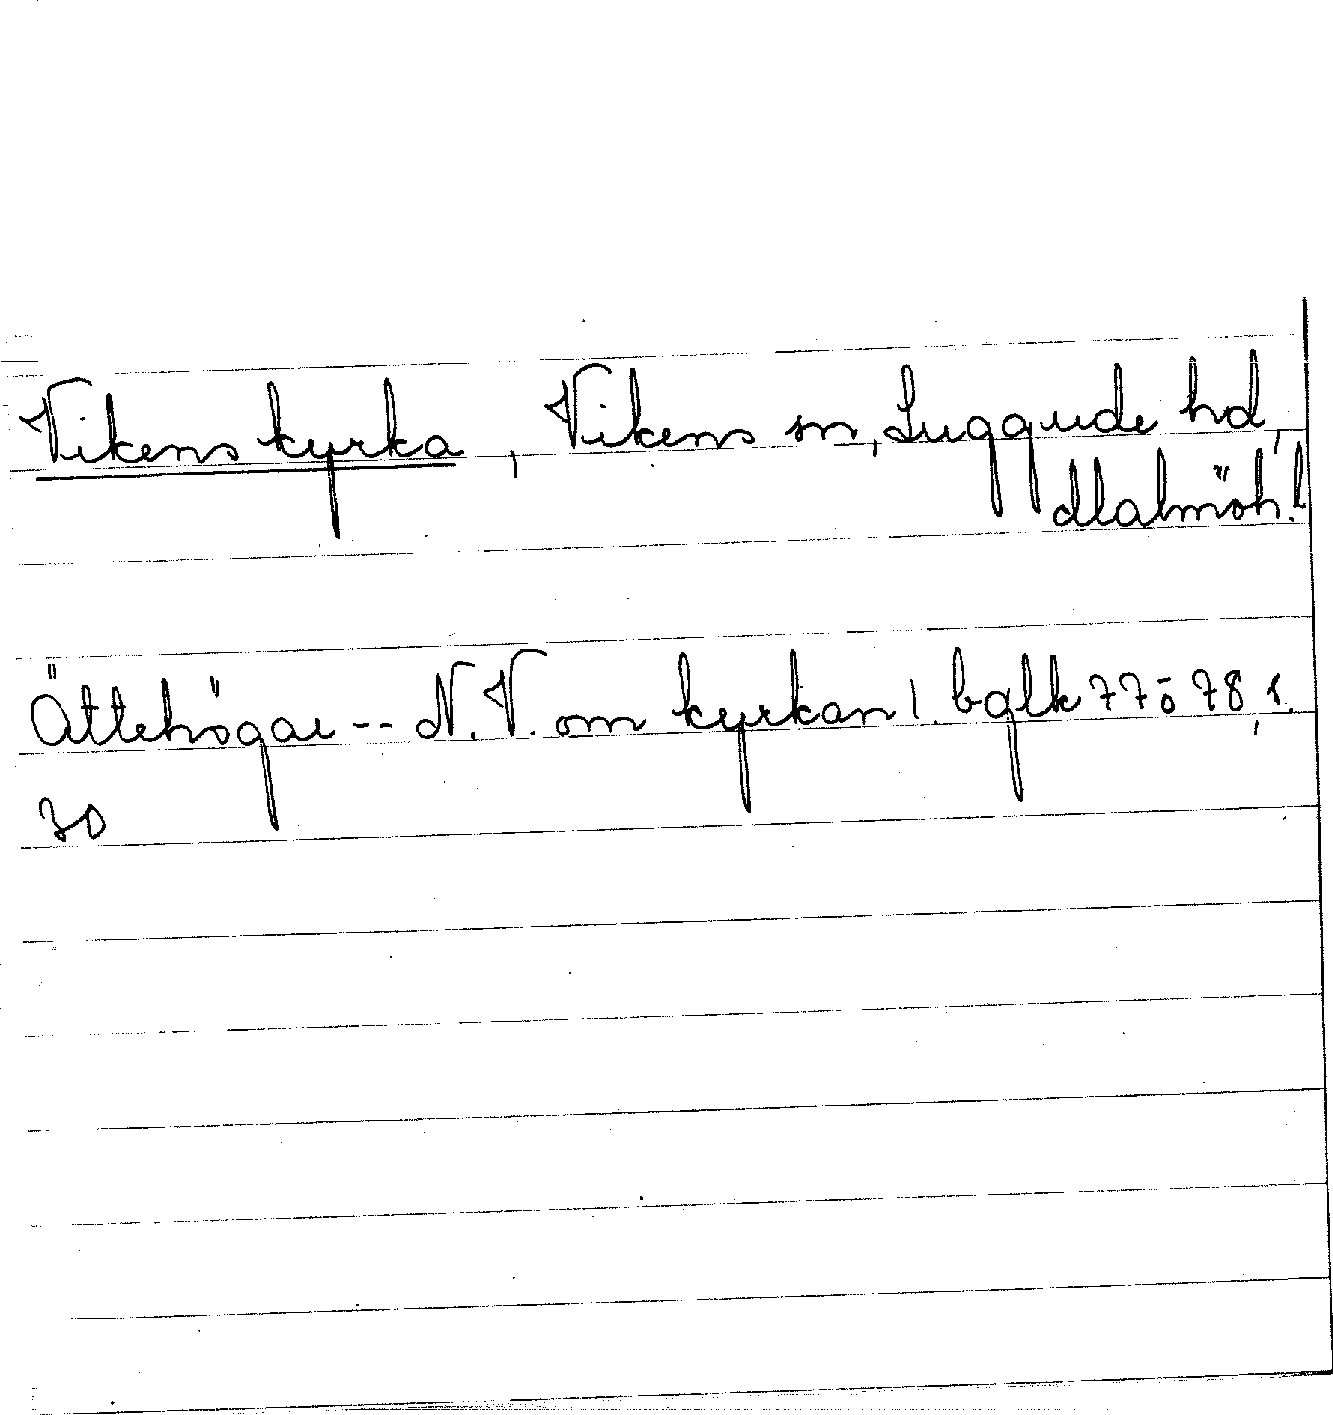 Vikens kyrka, Vikens sn, Luggude hd,
Malmöh. l
Ättehögar -- N.V. om kyrkan, bglk 77 ö 78, s.
30